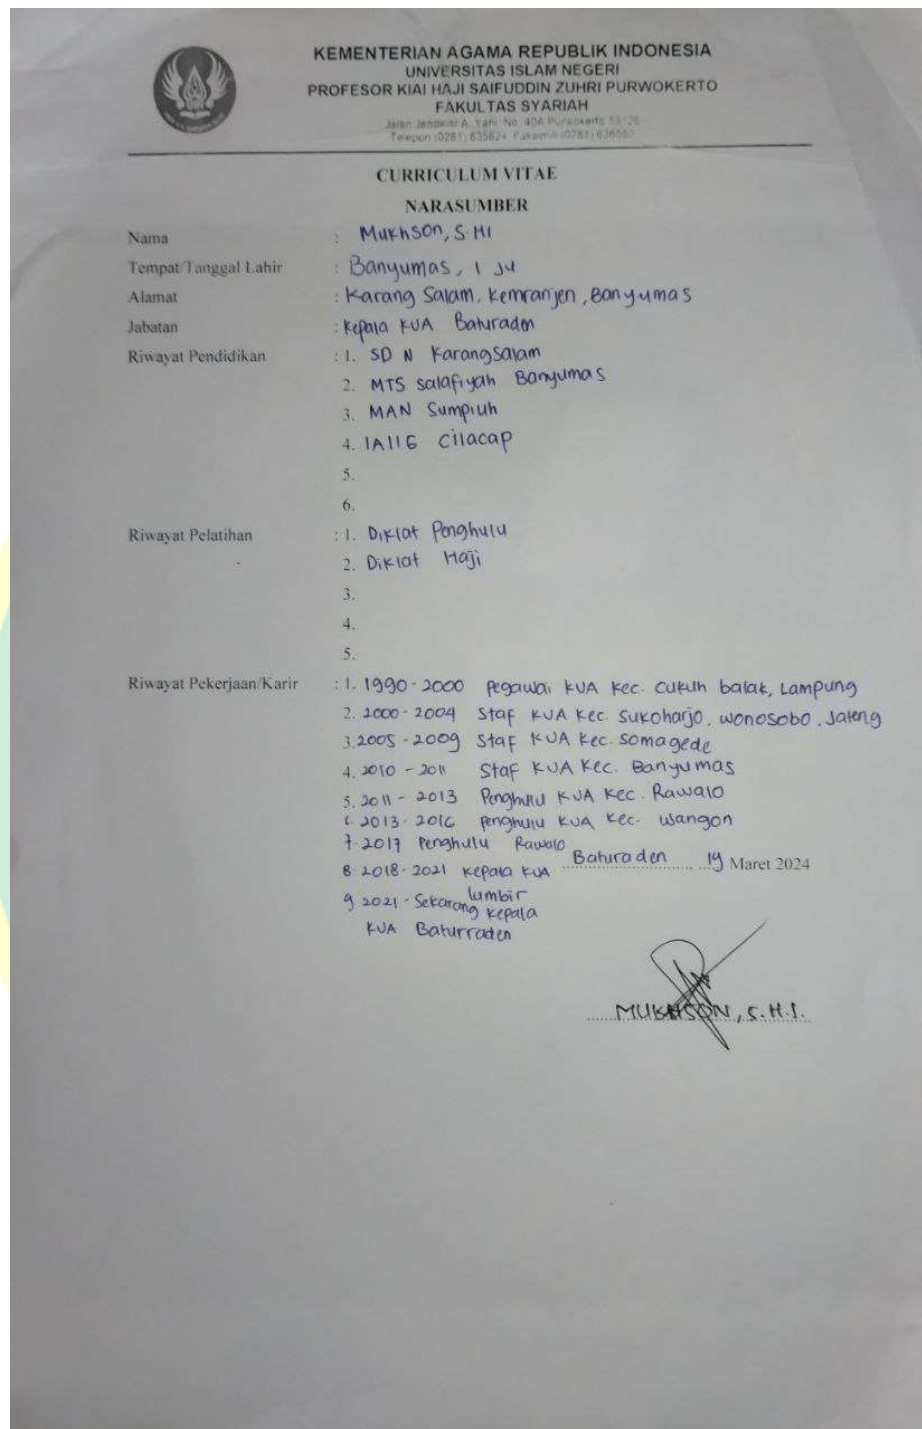 KEMENTERIAN AGAMA REPUBLIK INDONESIA
UNIVERSITAS ISLAM NEGERI
PROFESOR KIAI HAJI SAIFUDDIN ZUHRI PURWOKERTO
FAKULTAS SYARIAH
Jalan Jenderal A. Yani, No. 40A Purwokerto 53126
Telepon (0281) 635624 Faksimili (0281) 636553
CURRICULUM VITAE
NARASUMBER
Nama : Mukhson, S.HI
Tempat/Tanggal Lahir : Banyumas, 1 Ju
Alamat : Karang Salam, Kemranjen, Banyumas
Jabatan : Kepala KUA Baturaden
Riwayat Pendidikan : 1. SD N Karangsalam
2. MTS Salafiyah Banyumas
3. MAN Sumpiuh
4. IAIIG Cilacap
5.
6.
Riwayat Pelatihan : 1. Diklat Penghulu
2. Diklat Haji
3.
4.
5.
Riwayat Pekerjaan/Karir : 1. 1990-2000 Pegawai KUA Kec. Cukuh balak, Lampung
2. 2000-2004 Staf KUA Kec. Sukoharjo, Wonosobo, Jateng
3. 2005-2009 Staf KUA Kec. Somagede
4. 2010-2011 Staf KUA Kec. Banyumas
5. 2011-2013 Penghulu KUA Kec. Rawalo
6. 2013-2016 Penghulu KUA Kec. Wangon
7. 2017 Penghulu Rawalo
8. 2018-2021 Kepala KUA lumbir
Baturaden 19 Maret 2024
9. 2021 - Sekarang Kepala
KUA Baturraden
MUKHSON, S.H.I.